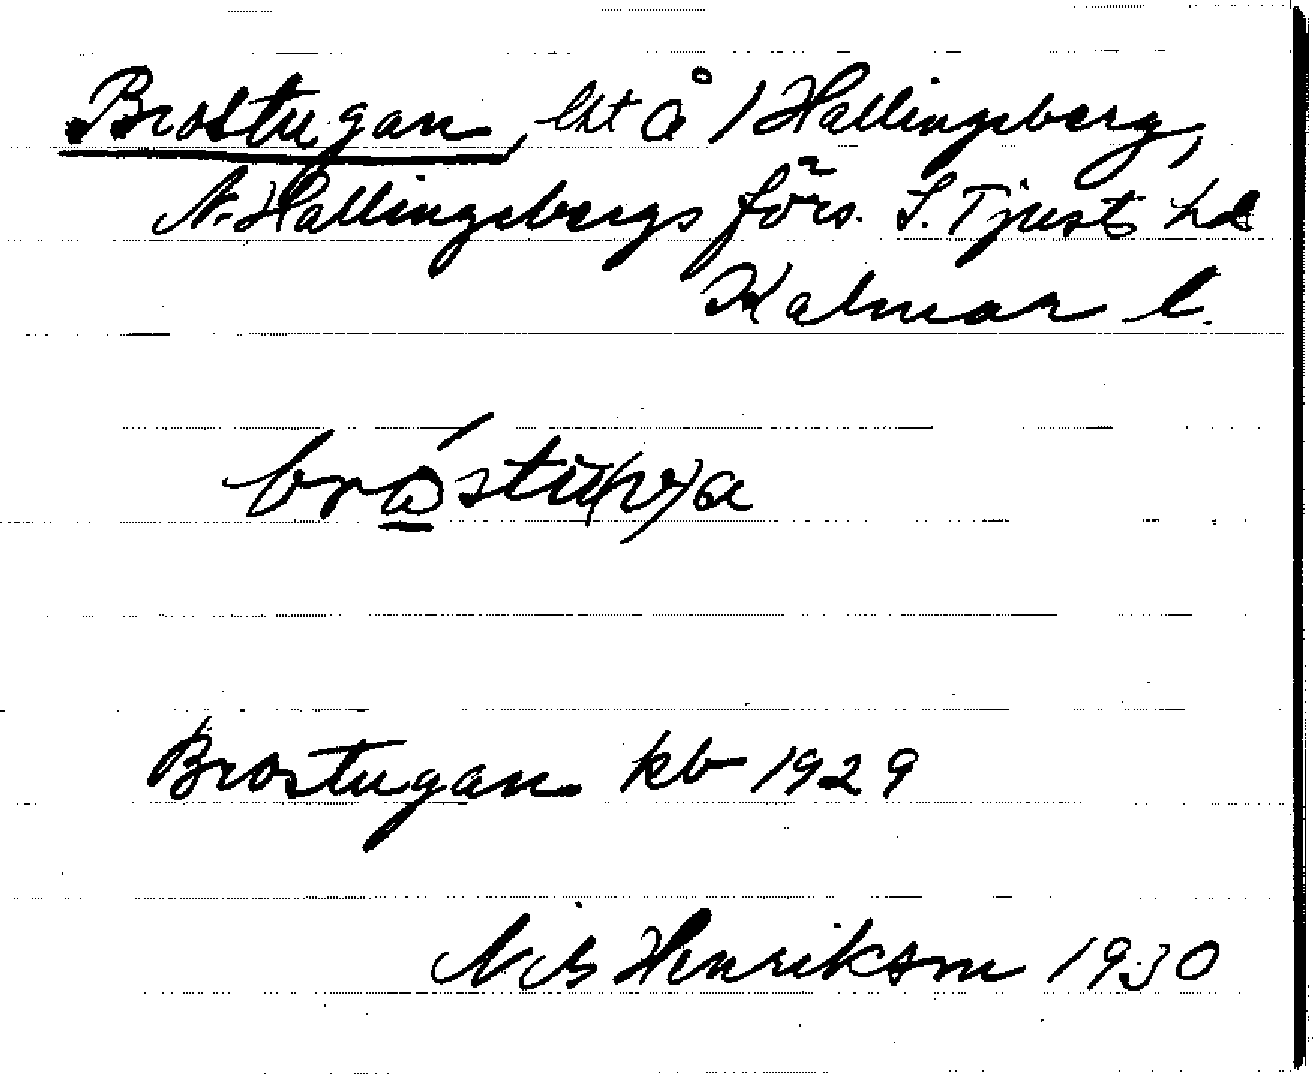 Brostugan, lht å 1 Hallingeberg,
N. Hallingebergs förs. S. Tjusts hd
Kalmar l.
bråstu(v)a
Brostugan kb 1929
Nils Henrikson 1930